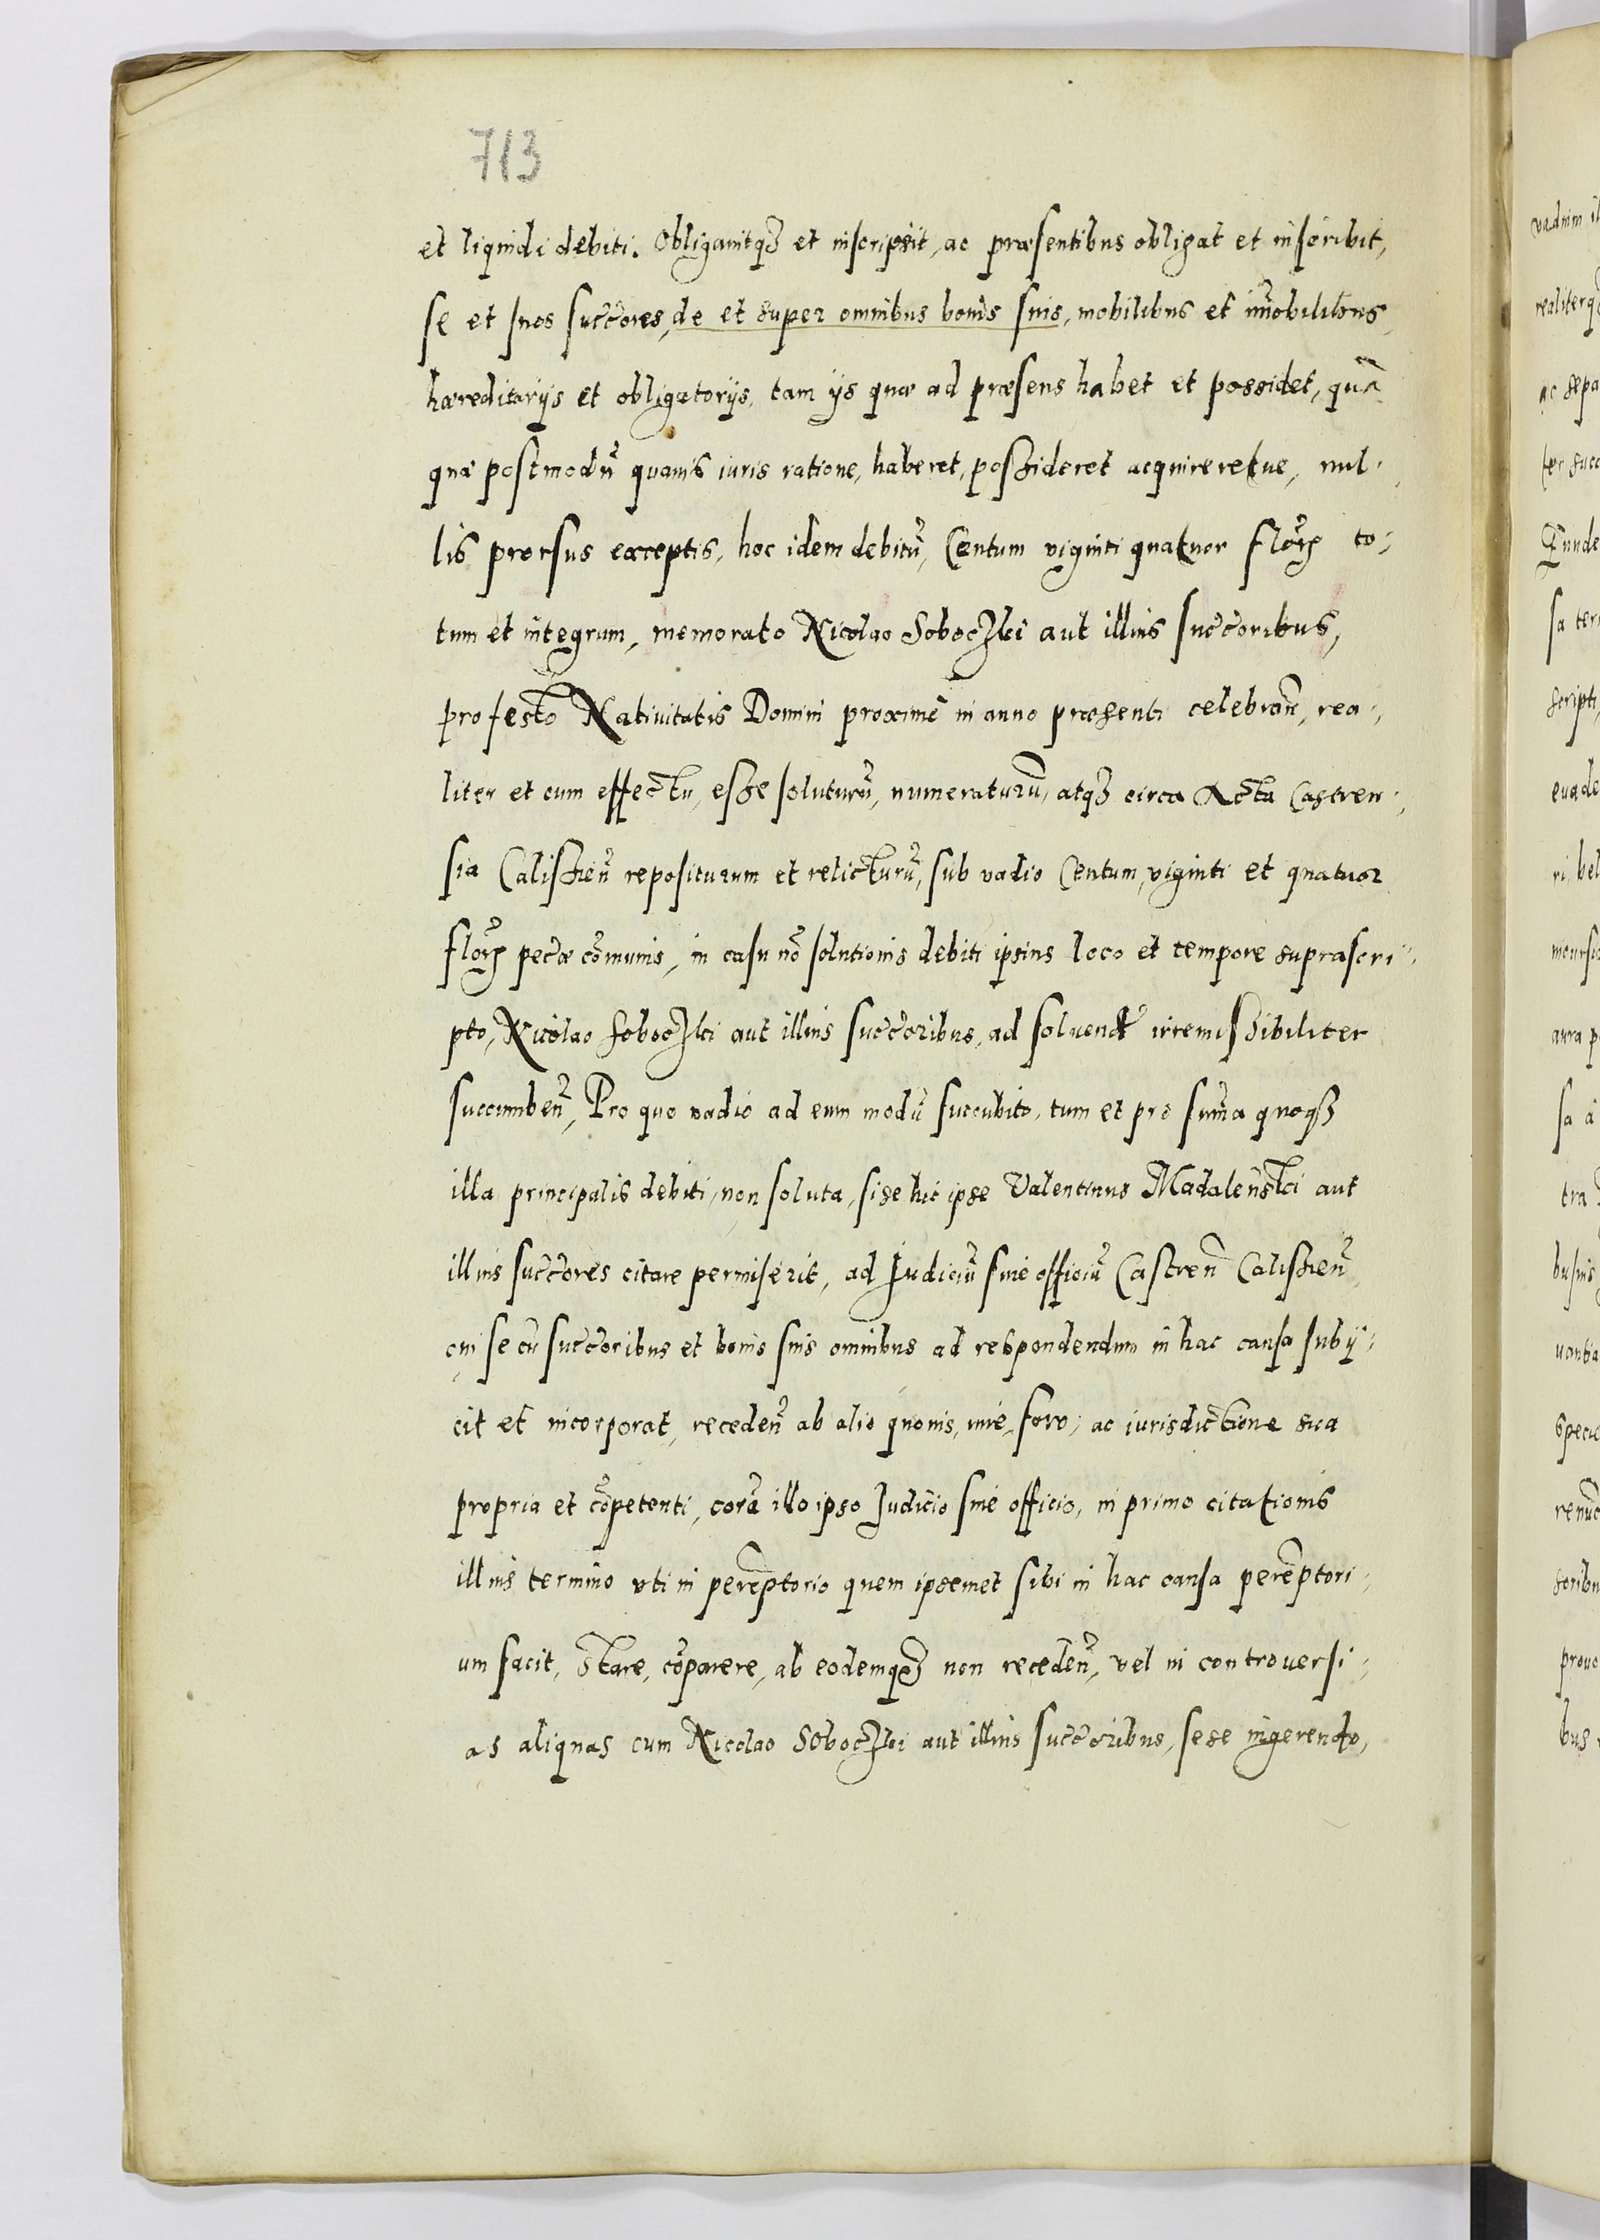 713
et liquidi debiti. Obligauitqȝ et inscripsit, ac præsentibus obligat et inscribit,
se et suos succ̃ores, de et super omnibus bonis suis, mobilibus et im̃obilibus
hæreditarijs et obligatorijs, tam ijs quæ ad præsens habet et possidet, quã
quæ postmodũ quauis iuris ratione, haberet, possideret acquireretue, nul-
lis prorsus exceptis, hoc idem debitũ, Centum viginti quatuor flor̃ to-
tum et integrum, memorato Nicolao Soboczki aut illius succ̃oribus,
pro festo Natiuitatis Domini proximè in anno præsenti celebrañ, rea-
liter et cum effectu, esse soluturũ, numeraturũ, atqȝ circa Acta Castren-
sia Calissieñ repositurum et relicturũ, sub vadio Centum, viginti et quatuor
flor̃ pec̃æ com̃unis, in casu nõ solutionis debiti ipsius loco et tempore suprascri-
pto, Nicolao Soboczki aut illius succ̃oribus, ad soluend̃ irremissibiliter
succumbeñ, Pro quo vadio ad eum modũ succubito, tum et pro sum̃a quoqȝ
illa principalis debiti, non soluta, si se hic ipse Valentinus Madalenski aut
illius succ̃ores citare permiserit, ad Judiciũ siue officiũ Castreñ Calissieñ
cui se cũ succ̃oribus et bonis suis omnibus ad respondendum in hac causa subij-
cit et incorporat, recedeñ ab alio quouis, iure, foro, ac iurisdictione sua
propria et cõpetenti, corã illo ipso Judicio siue officio, in primo citationis
illius termino vti in perẽptorio quem ipsemet sibi in hac causa perẽptori-
um facit, stare, cõparere, ab eodemqȝ non recedeñ, vel in controuersi-
as aliquas cum Nicolao Soboczki aut illius succ̃oribus, sese ingerendo,
vadium
realiterqȝ